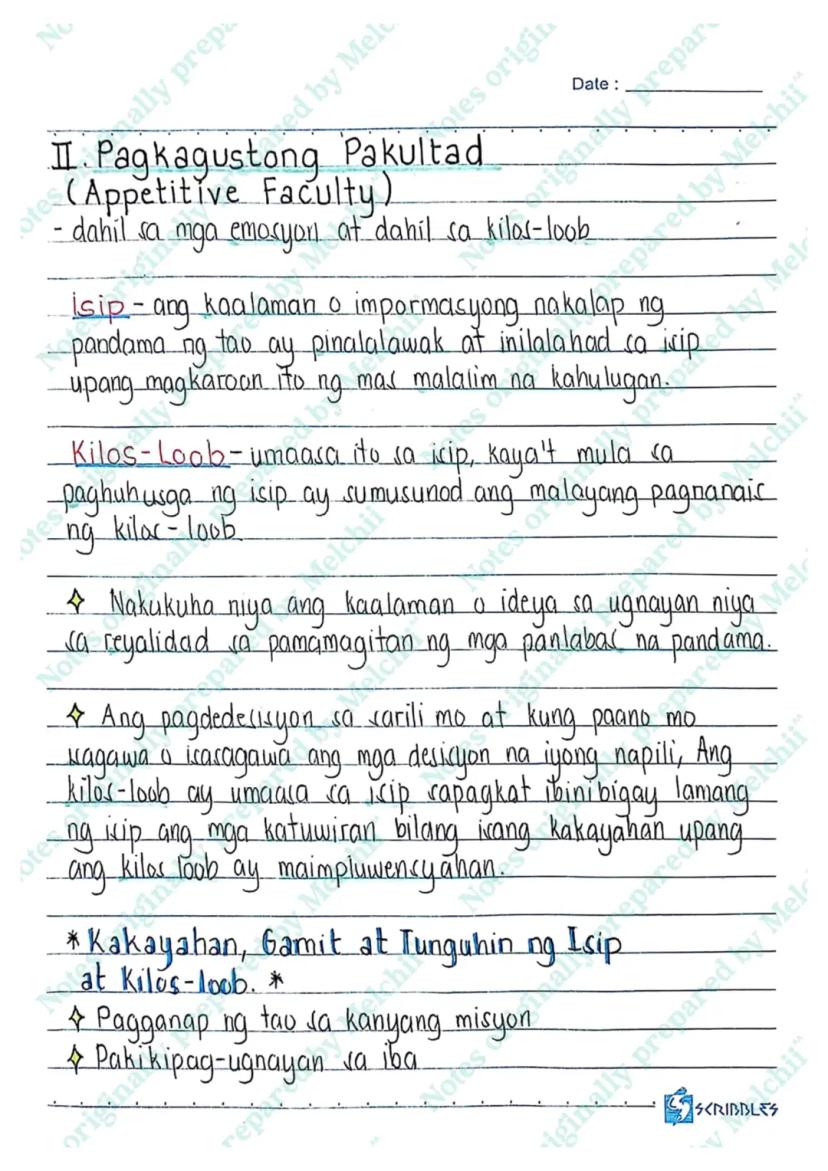 Date :
II. Pagkagustong Pakultad
(Appetitive Faculty)
- dahil sa mga emosyon at dahil sa kilos-loob
isip - ang kaalaman o impormasyong nakalap ng
pandama ng tao ay pinalalawak at inilalahad sa isip
upang magkaroon ito ng mas malalim na kahulugan.
Kilos-Loob - umaasa ito sa isip, kaya't mula sa
paghuhusga ng isip ay sumusunod ang malayang pagnanais
ng kilos-loob
✧ Nakukuha niya ang kaalaman o ideya sa ugnayan niya
sa reyalidad sa pamamagitan ng mga panlabas na pandama.
✧ Ang pagdedesisyon sa sarili mo at kung paano mo
nagawa o isasagawa ang mga desisyon na iyong napili, Ang
kilos-loob ay umaasa sa isip sapagkat ibinibigay lamang
ng isip ang mga katuwiran bilang isang kakayahan upang
ang kilos loob ay maimpluwensyahan.
* Kakayahan, Gamit at Tunguhin ng Isip
at Kilos-loob. *
✧ Pagganap ng tao sa kanyang misyon
✧ Pakikipag-ugnayan sa iba
SCRIBBLES
Notes originally prepared by Melchii